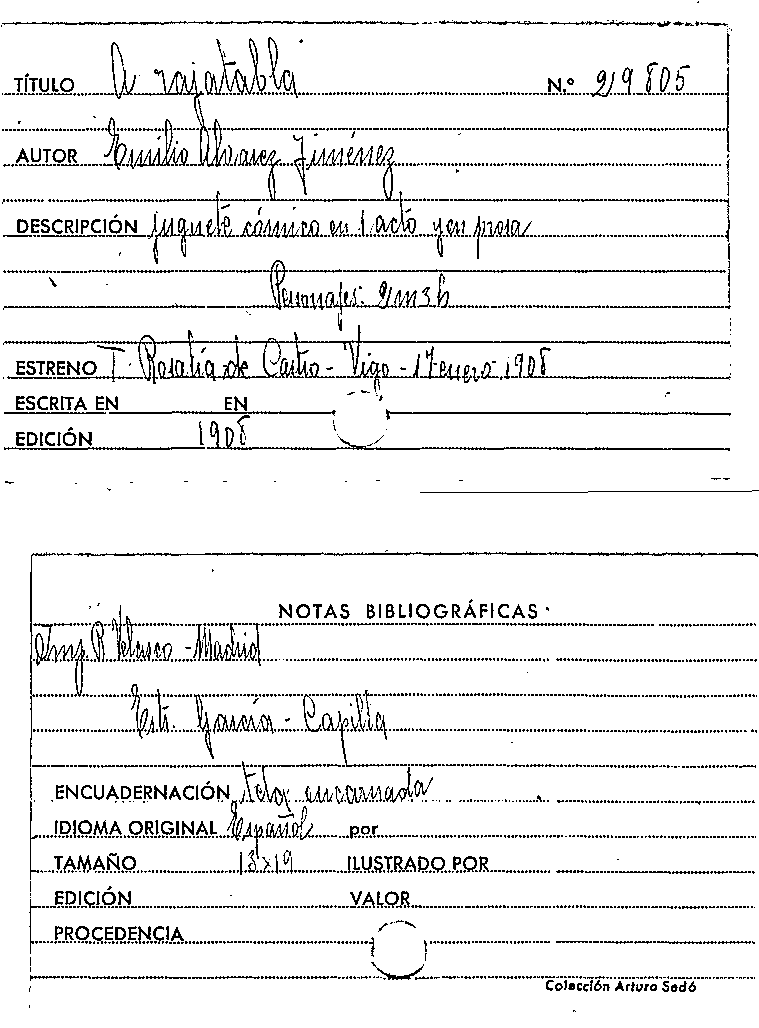 TÍTULO A rajatabla N.º 29805
AUTOR Emilio Alvarez Jiménez
DESCRIPCIÓN juguete cómico en 1 acto y en prosa
Personajes: 2m3h
ESTRENO T. Rosalía de Castro - Vigo - 17 enero 1908
ESCRITA EN EN
EDICIÓN 1908
NOTAS BIBLIOGRÁFICAS
Imp. R. Velasco - Madrid
Estr. García - Capilla
ENCUADERNACIÓN tela encarnada
IDIOMA ORIGINAL Español por
TAMAÑO 13x19 ILUSTRADO POR
EDICIÓN VALOR
PROCEDENCIA
Colección Arturo Sedó